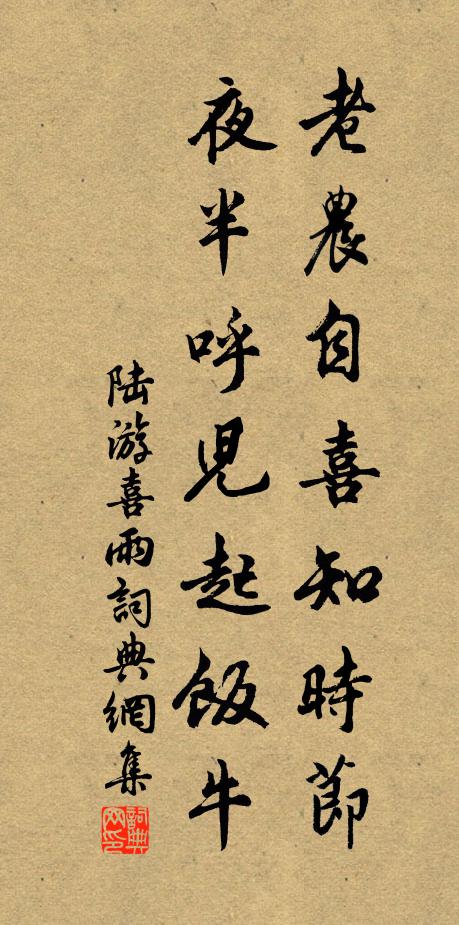 老農自喜知時節
夜半呼兒起飯牛
陆游喜雨詞典網集
詞典網印